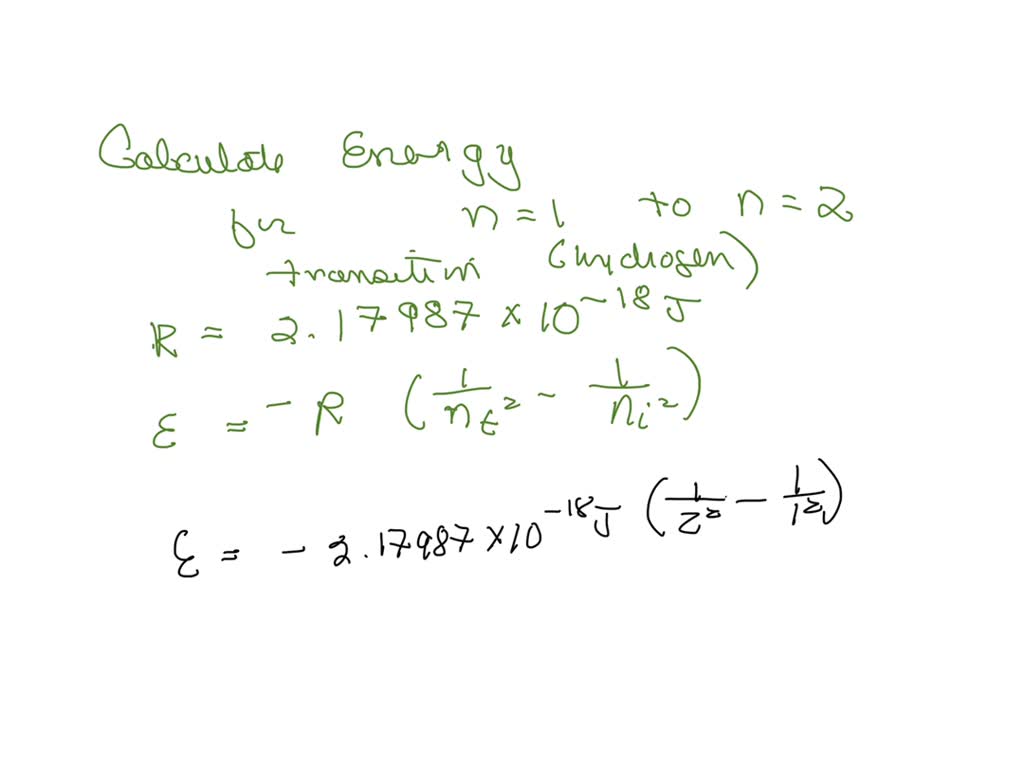 Calculate Energy
for n = 1 to n = 2
transition (hydrogen)
R = 2.17987 × 10^-18 J
E = - R (1/n_f² - 1/n_i²)
E = - 2.17987 × 10^-18 J (1/2² - 1/1²)